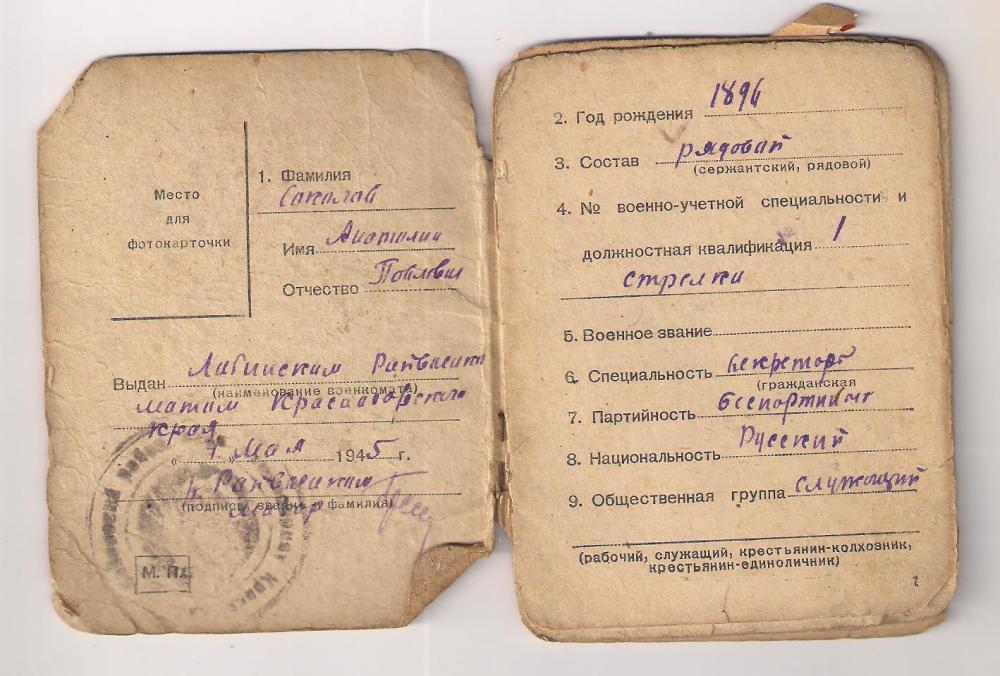 Место
для
фотокарточки
1. Фамилия
Соколов
Имя Анатолий
Отчество Павлович
Выдан Лабинским Райвоенко
(наименование военкомата)
матом Краснодарского
края
« 7 » Мая 1945 г.
Райвоенком
Майор
(подпись, звание и фамилия)
М. П.
2. Год рождения 1896
3. Состав рядовой
(сержантский, рядовой)
4. № военно-учетной специальности и
должностная квалификация 1
стрелки
5. Военное звание
6. Специальность Секретарь
(гражданская
7. Партийность беспартийный
8. Национальность Русский
9. Общественная группа служащий
(рабочий, служащий, крестьянин-колхозник,
крестьянин-единоличник)